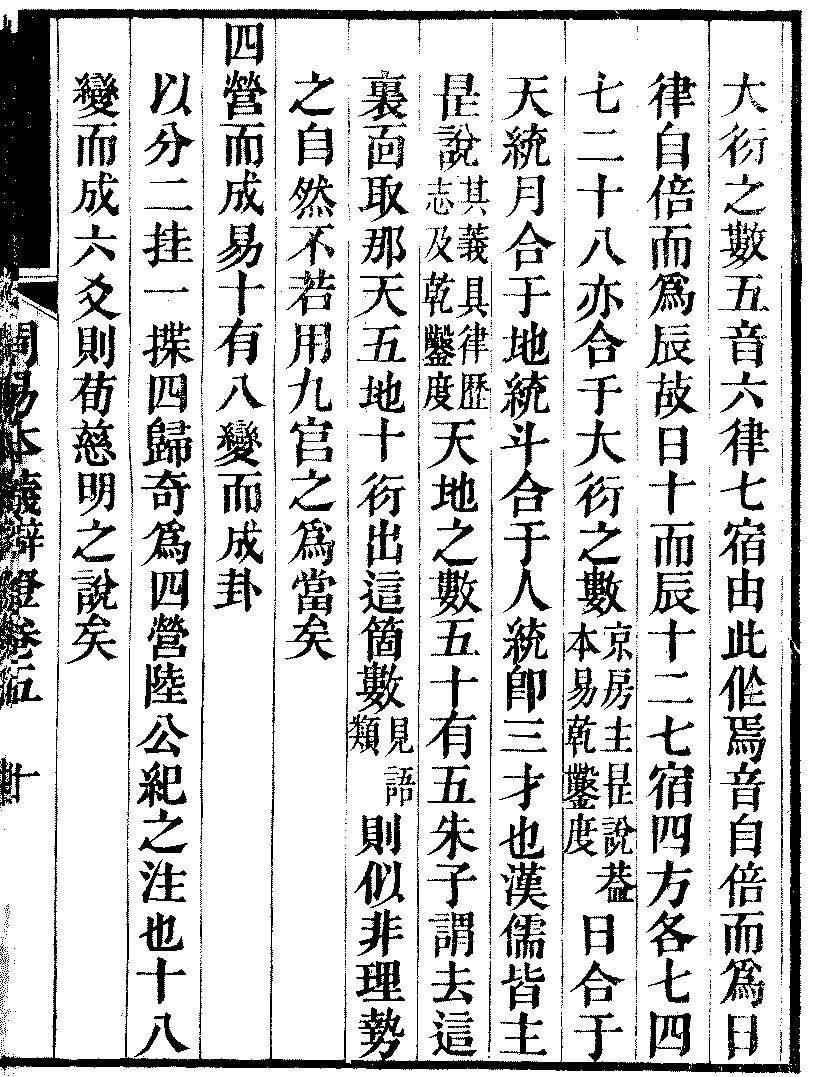 大衍之數五音六律七宿由此作焉音自倍而爲日
律自倍而爲辰故日十而辰十二七宿四方各七四
七二十八亦合于大衍之數京房主是說葢本易乾鑿度日合于
天統月合于地統斗合于人統卽三才也漢儒皆主
是說其義具律歷志及乾鑿度天地之數五十有五朱子謂去這
裏面取那天五地十衍出這箇數見語類則似非理勢
之自然不若用九宫之爲當矣
四營而成易十有八變而成卦
以分二挂一揲四歸奇爲四營陸公紀之注也十八
變而成六爻則荀慈明之說矣
周易本義辯證卷五